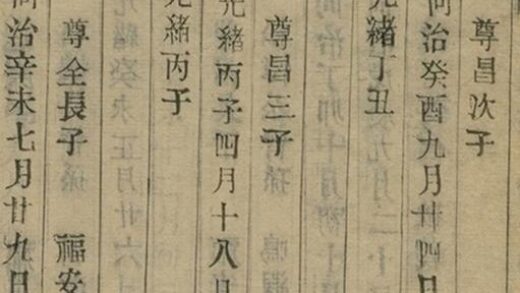 尊昌次子
同治癸酉九月廿四日
光緒丁丑
尊昌三子
光緒丙子四月十八日
光緒丙子
尊全長子 福安
同治辛未七月廿九日